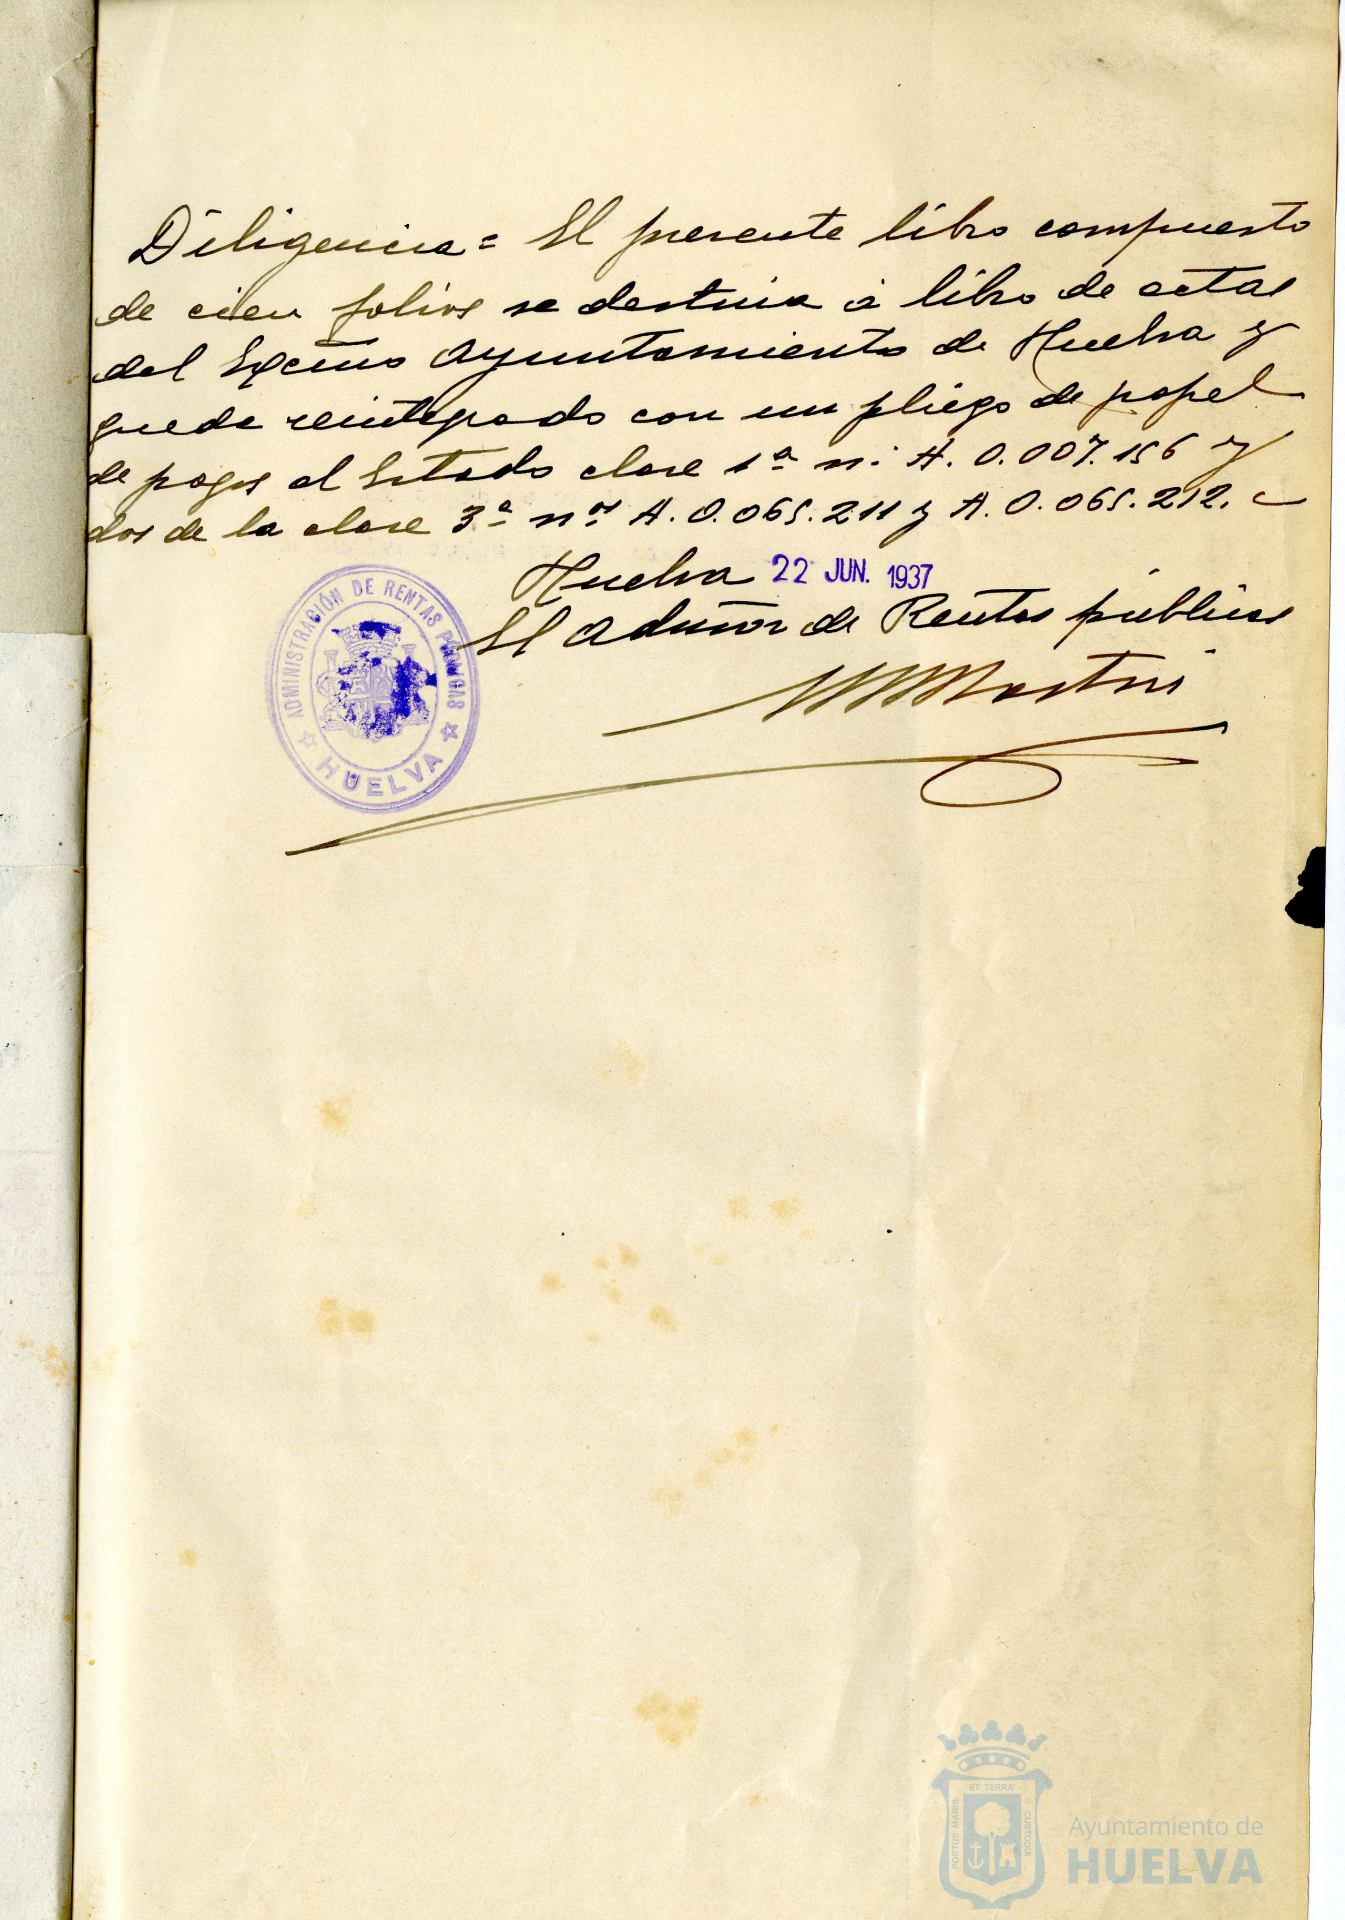 Diligencia = El presente libro compuesto
de cien folios se destina á libro de actas
del Excmo Ayuntamiento de Huelva y
queda reintegrado con un pliego de papel
de pagos al Estado clase 1ª nº A. 0.007.156 y
dos de la clase 3ª nos A. 0.065.211 y A. 0.065.212.
Huelva 22 JUN. 1937
El Admor de Rentas públicas
Martin
ADMINISTRACIÓN DE RENTAS PÚBLICAS
HUELVA
PORTUS MARIS ET TERRÆ CUSTODIA
Ayuntamiento de
HUELVA